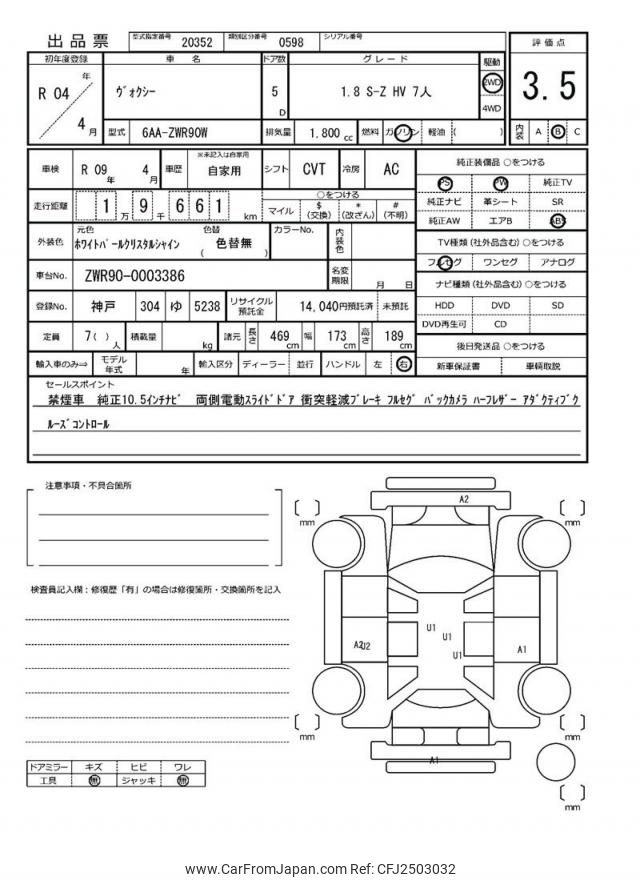 出品票 型式指定番号 20352 類別区分番号 0598 シリアル番号
評価点
3.5
内装 A B C
初年度登録 車名 ドア数 グレード 駆動
R 04 年 4 月 ヴォクシー 5 D 1.8 S-Z HV 7人 2WD 4WD
型式 6AA-ZWR90W 排気量 1,800 cc 燃料 ガソリン 軽油 ( )
車検 R 09 年 4 月 車歴 ※未記入は自家用 自家用 シフト CVT 冷房 AC
走行距離 1 万 9 千 6 6 1 km ○をつける
マイル $ (交換) * (改ざん) # (不明)
外装色 元色 ホワイトパールクリスタルシャイン 色替 ( 色替無 ) カラーNo. 内装色
車台No. ZWR90-0003386 名変期限 月 日
登録No. 神戸 304 ゆ 5238 リサイクル預託金 14,040円預託済 未預託
定員 7( ) 人 積載量 kg 諸元 長さ 469 cm 幅 173 cm 高さ 189 cm
輸入車のみ⇒ モデル年式 年 輸入区分 ディーラー 並行 ハンドル 左 右
純正装備品 ○をつける
PS PW 純正TV
純正ナビ 革シート SR
純正AW エアB ABS
TV種類 (社外品含む) ○をつける
フルセグ ワンセグ アナログ
ナビ種類 (社外品含む) ○をつける
HDD DVD SD
DVD再生可 CD
後日発送品 ○をつける
新車保証書 車輌取説
セールスポイント
禁煙車 純正10.5インチナビ 両側電動スライドドア 衝突軽減ブレーキ フルセグ バックカメラ ハーフレザー アダクティブク
ルーズコントロール
注意事項・不具合箇所
検査員記入欄：修復歴「有」の場合は修復箇所・交換箇所を記入
A2
mm
mm
U1
U1
U1
A2U2
A1
mm
mm
A1
mm
ドアミラー キズ ヒビ ワレ
工具 無 ジャッキ 無
www.CarFromJapan.com Ref: CFJ2503032